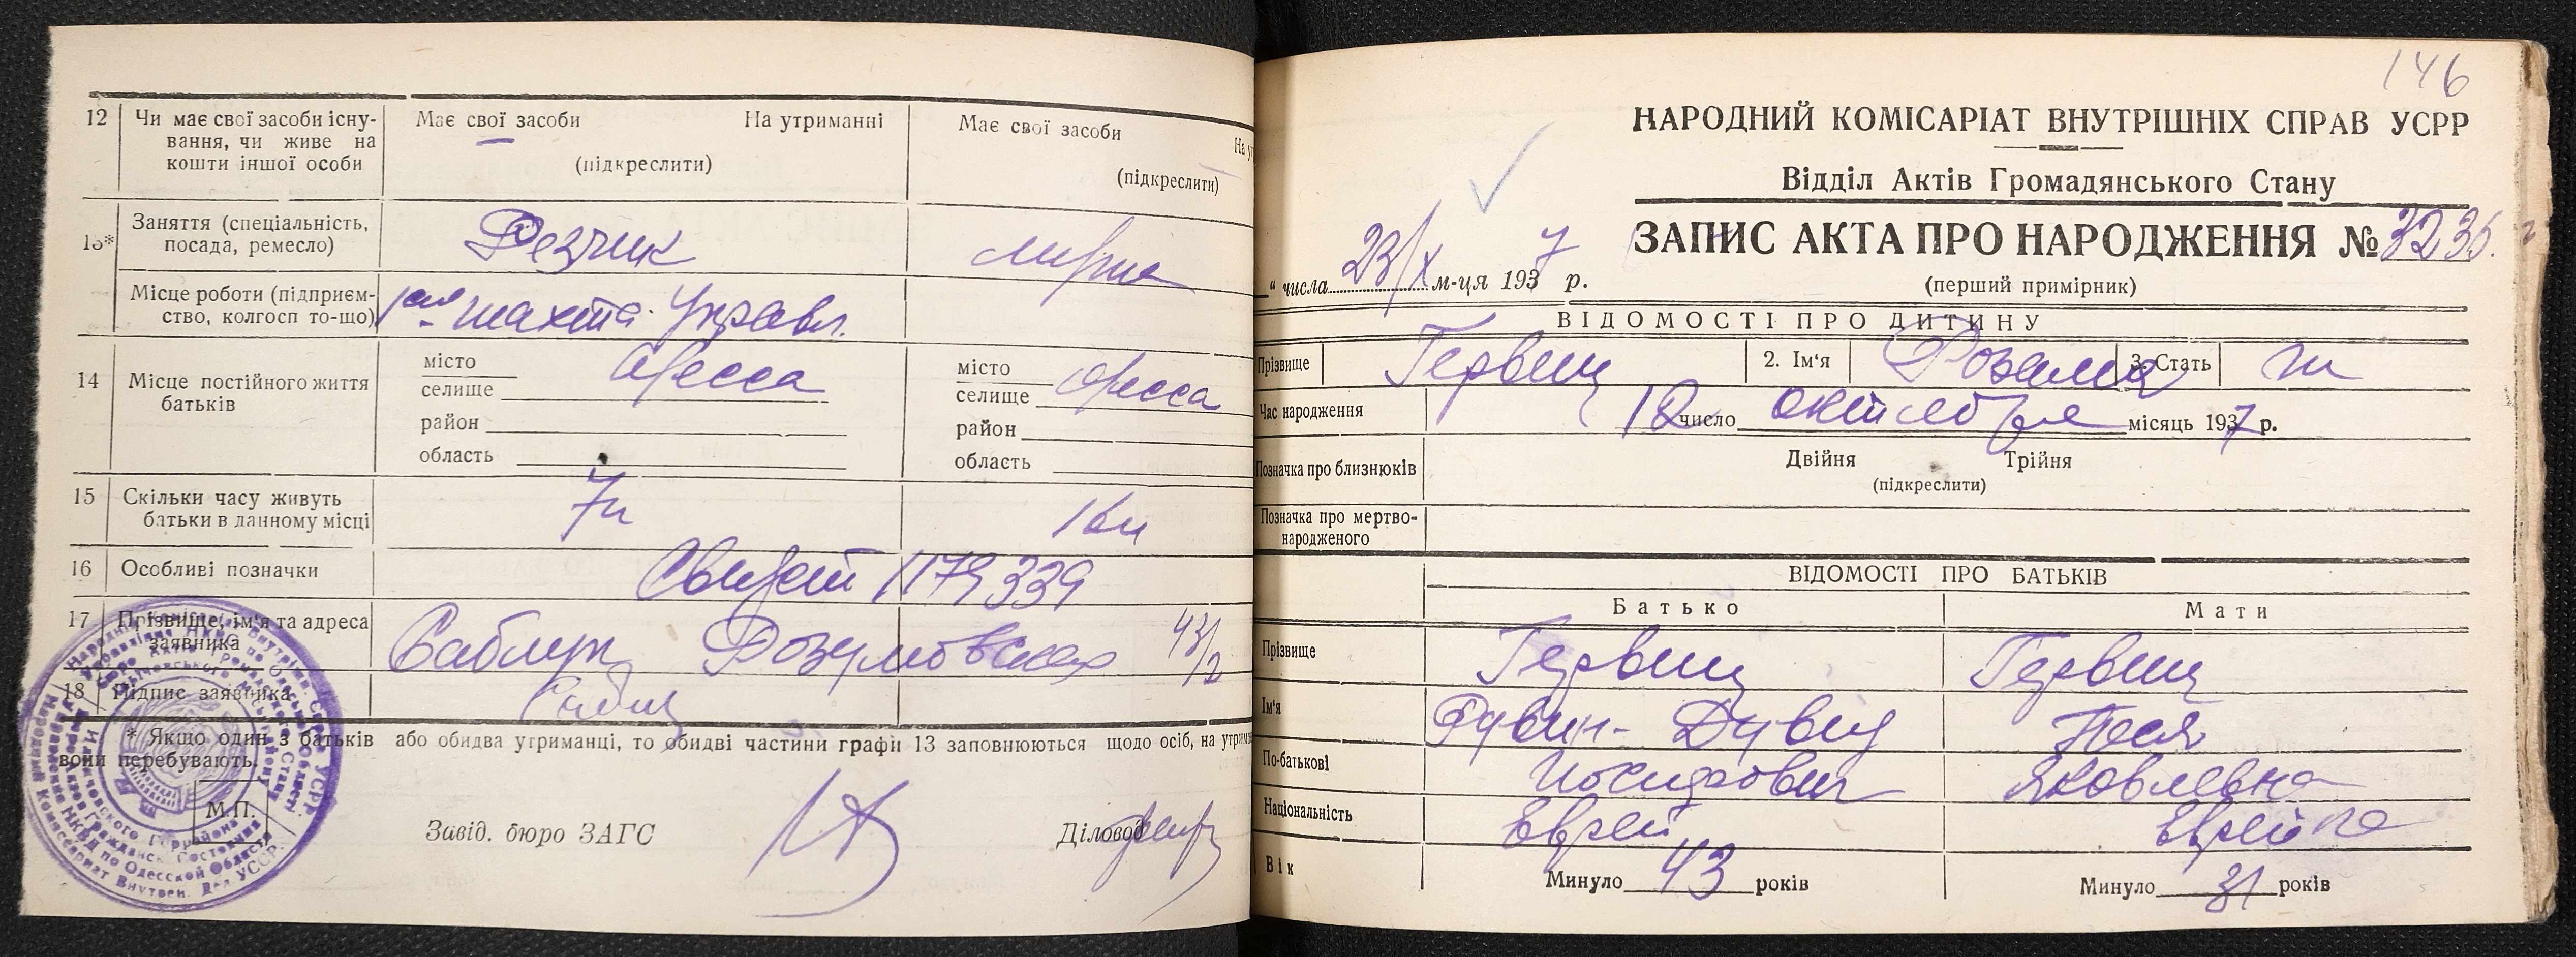 12 Чи має свої засоби існу-
вання, чи живе на
кошти іншої особи
Має свої засоби На утриманні
(підкреслити)
Має свої засоби
(підкреслити)
13* Заняття (спеціальність,
посада, ремесло)
Резчик
Місце роботи (підприєм-
ство, колгосп то-що)
1ая шахта. Управл.
14 Місце постійного життя
батьків
місто
селище
Одесса
район
область
місто
селище
Одесса
район
область
15 Скільки часу живуть
батьки в данному місці
7л
16л
16 Особливі позначки
1179339
17 Прізвище, ім'я та адреса
заявника
Саблук Розумовская 43/2
18 Підпис заявника
* Якщо один з батьків або обидва утриманці, то обидві частини графи 13 заповнюються щодо осіб, на утрим
вони перебувають.
М.П.
Завід. бюро ЗАГС
Діловод
146
НАРОДНИЙ КОМІСАРІАТ ВНУТРІШНІХ СПРАВ УСРР
Відділ Актів Громадянського Стану
ЗАПИС АКТА ПРО НАРОДЖЕННЯ № 3235.
(перший примірник)
" числа 23/X м-ця 1937 р.
ВІДОМОСТІ ПРО ДИТИНУ
Прізвище Гервиц 2. Ім'я Розалия 3. Стать ж
Час народження 12 число октября місяць 1937 р.
Позначка про близнюків
Двійня Трійня
(підкреслити)
Позначка про мертво-
народженого
ВІДОМОСТІ ПРО БАТЬКІВ
Батько Мати
Прізвище Гервиц Гервиц
Ім'я Рувин- Дувид Песя
По-батькові Иосифович Яковлевна
Національність Еврей Еврейка
Вік Минуло 43 років Минуло 31 років